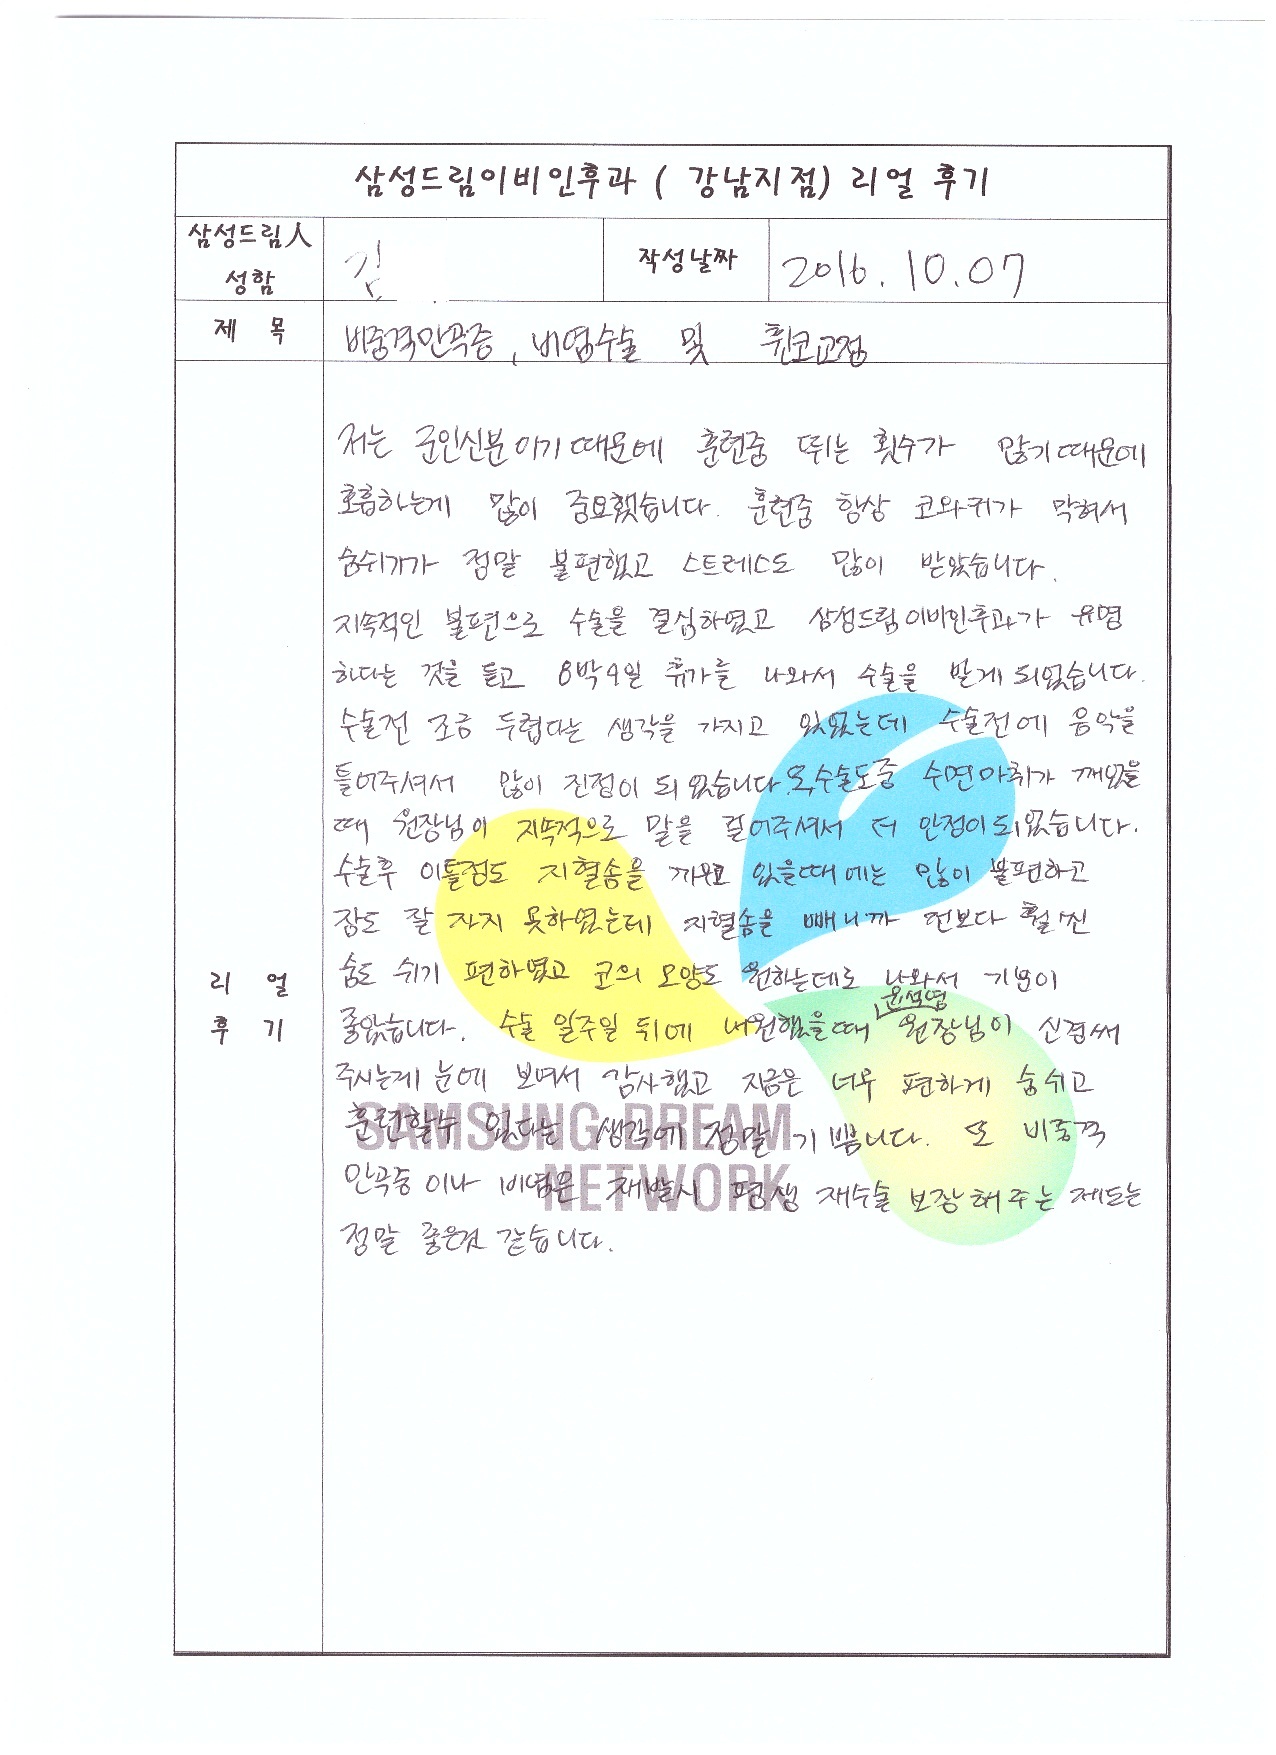 삼성드림이비인후과 ( 강남지점) 리얼 후기
삼성드림人
성함
김
작성날짜
2016. 10. 07
제 목
비중격만곡증, 비염수술 및 휜코교정
저는 군인신분이기때문에 훈련중 뛰는 횟수가 많기때문에
호흡하는게 많이 중요했습니다. 훈련중 항상 코와귀가 막혀서
숨쉬기가 정말 불편했고 스트레스도 많이 받았습니다.
지속적인 불편으로 수술을 결심하였고 삼성드림이비인후과가 유명
하다는 것을 듣고 8박9일 휴가를 나와서 수술을 받게 되었습니다.
수술전 조금 두렵다는 생각을 가지고 있었는데 수술전에 음악을
틀어주셔서 많이 진정이 되었습니다. 또,수술도중 수면마취가 깨었을
때 원장님이 지속적으로 말을 걸어주셔서 더 안정이되었습니다.
수술후 이틀정도 지혈솜을 끼우고 있을때에는 많이 불편하고
잠도 잘 자지 못하였는데 지혈솜을 빼니까 전보다 훨씬
숨도 쉬기 편하였고 코의 모양도 원하는데로 나와서 기분이
좋았습니다. 수술 일주일 뒤에 내원했을때 윤석영 원장님이 신경써
주시는게 눈에 보여서 감사했고 지금은 너무 편하게 숨쉬고
훈련할수 있다는 생각에 정말 기쁩니다. 또 비중격
만곡증이나 비염은 재발시 평생 재수술 보장해주는 제도는
정말 좋은것 같습니다.
리 얼
후 기
SAMSUNG DREAM
NETWORK